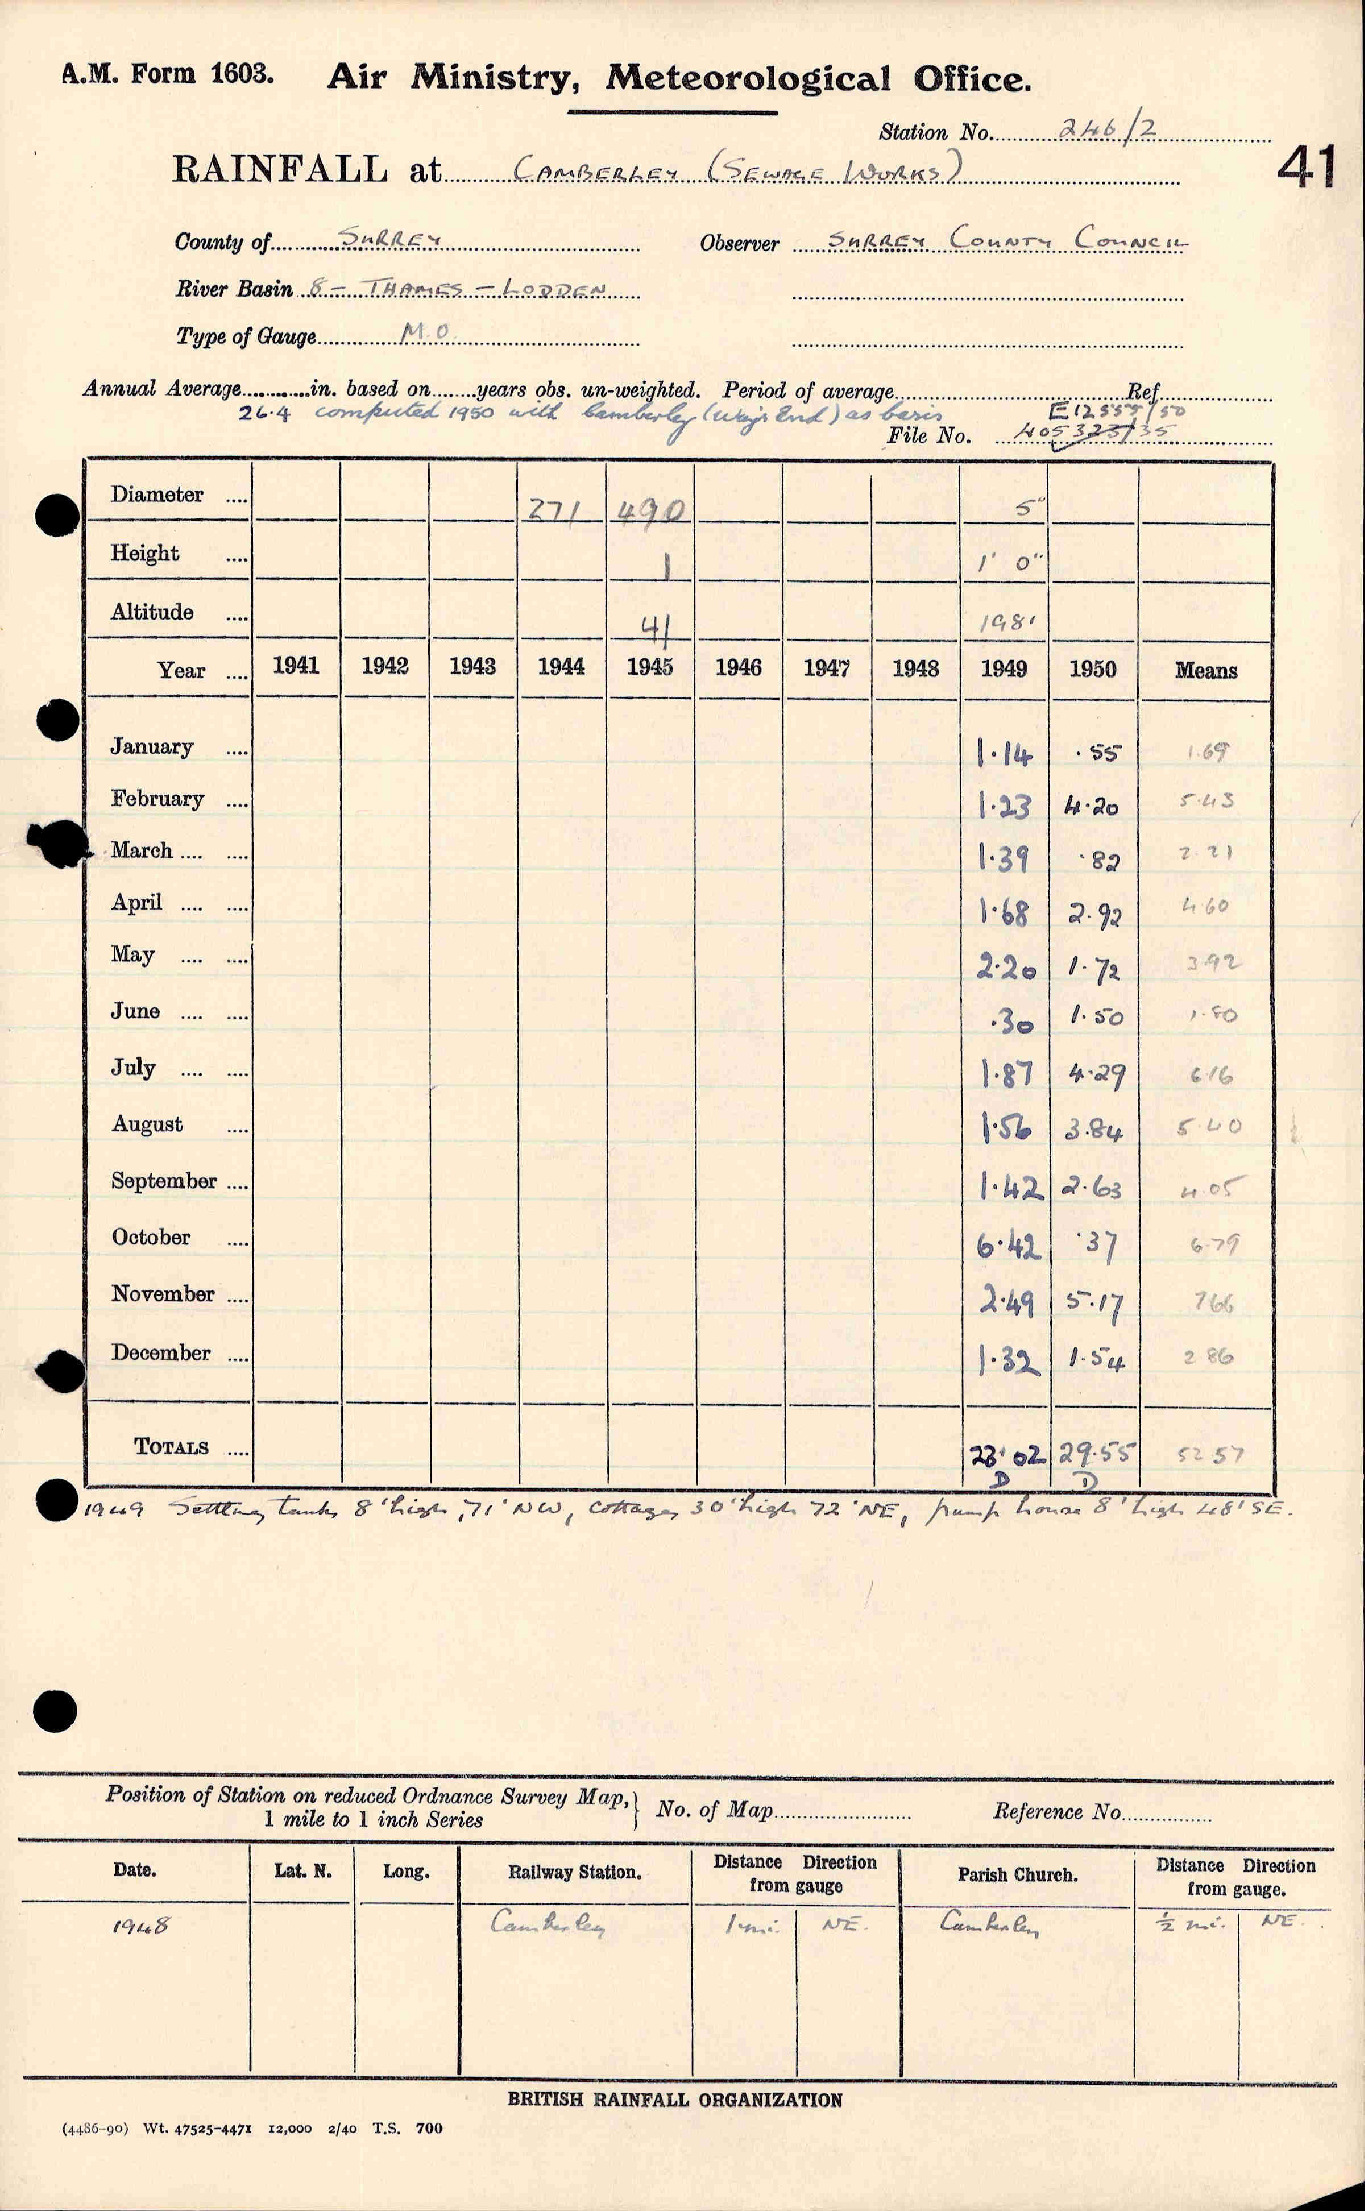 A.M. Form 1603. Air Ministry, Meteorological Office.
Station No. 246/2
41
RAINFALL at CAMBERLEY (SEWAGE WORKS)
County of SURREY Observer SURREY COUNTY COUNCIL
River Basin 8 - THAMES - LODDEN
Type of Gauge M.O.
Annual Average in. based on years obs. un-weighted. Period of average Ref
26.4 computed 1950 with Camberley (Wayʼs End) as basis E12555/50
File No. 405323/35
Diameter .... 271 490 5"
Height .... 1 1' 0"
Altitude .... 41 198'
Year .... 1941 1942 1943 1944 1945 1946 1947 1948 1949 1950 Means
January .... 1.14 .55 1.69
February .... 1.23 4.20 5.43
March .... .... 1.39 .82 2.21
April .... .... 1.68 2.92 4.60
May .... .... 2.20 1.72 3.92
June .... .... .30 1.50 1.80
July .... .... 1.87 4.29 6.16
August .... 1.56 3.84 5.40
September .... 1.42 2.63 4.05
October .... 6.42 .37 6.79
November .... 2.49 5.17 7.66
December .... 1.32 1.54 2.86
TOTALS .... 23.02 29.55 52.57
D D
1949 Settling tanks 8' high, 71' NW, cottages 30' high 72' NE, pump house 8' high 48' SE.
Position of Station on reduced Ordnance Survey Map, } No. of Map Reference No.
1 mile to 1 inch Series
Date. Lat. N. Long. Railway Station. Distance Direction from gauge Parish Church. Distance Direction from gauge.
1948 Camberley 1 mi. NE. Camberley ½ mi. NE.
BRITISH RAINFALL ORGANIZATION
(4486-90) Wt. 47525-4471 12,000 2/40 T.S. 700